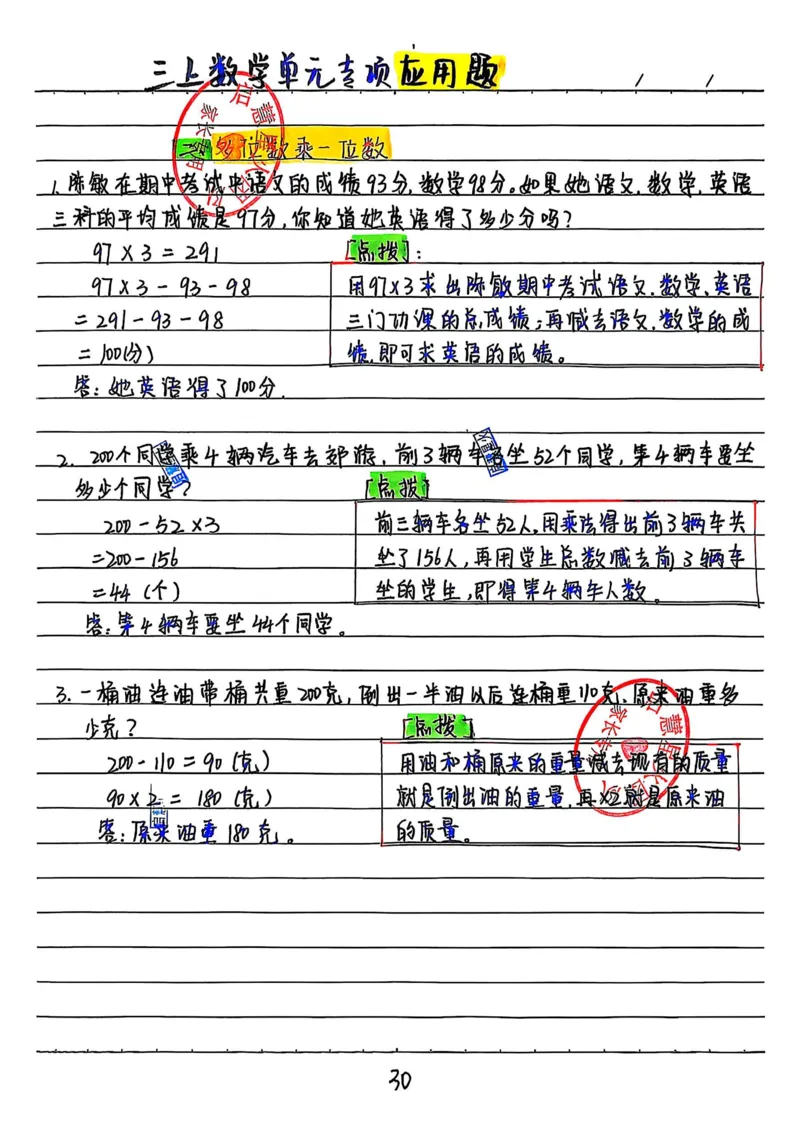 三上数学单元专项应用题
多位数乘一位数
1.陈敏在期中考试中语文的成绩93分,数学98分。如果她语文、数学、英语
三科的平均成绩是97分,你知道她英语得了多少分吗?
97×3=291
[点拨]:
97×3-93-98
=291-93-98
=100(分)
用97×3求出陈敏期中考试语文、数学、英语
三门功课的总成绩;再减去语文、数学的成
绩,即可求英语的成绩。
答:她英语得了100分.
2. 200个同学乘4辆汽车去郊游,前3辆车各坐52个同学,第4辆车要坐
多少个同学?
[点拨]
200-52×3
=200-156
=44(个)
前三辆车各坐52人,用乘法得出前3辆车共
坐了156人,再用学生总数减去前3辆车
坐的学生,即得第4辆车人数。
答:第4辆车要坐44个同学。
3.一桶油连油带桶共重200克,倒出一半油以后连桶重110克,原来油重多
少克?
[点拨]
200-110=90(克)
90×2=180(克)
用油和桶原来的重量减去现有的质量
就是倒出油的重量,再×2就是原来油
的质量。
答:原来油重180克。
30